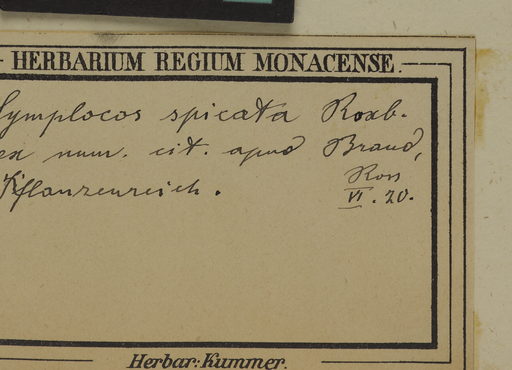 HERBARIUM REGIUM MONACENSE.
Symplocos spicata Roxb.
ex num. cit. apud Brand,
Pflanzenreich.
Ross
VI. 20.
Herbar: Kummer.